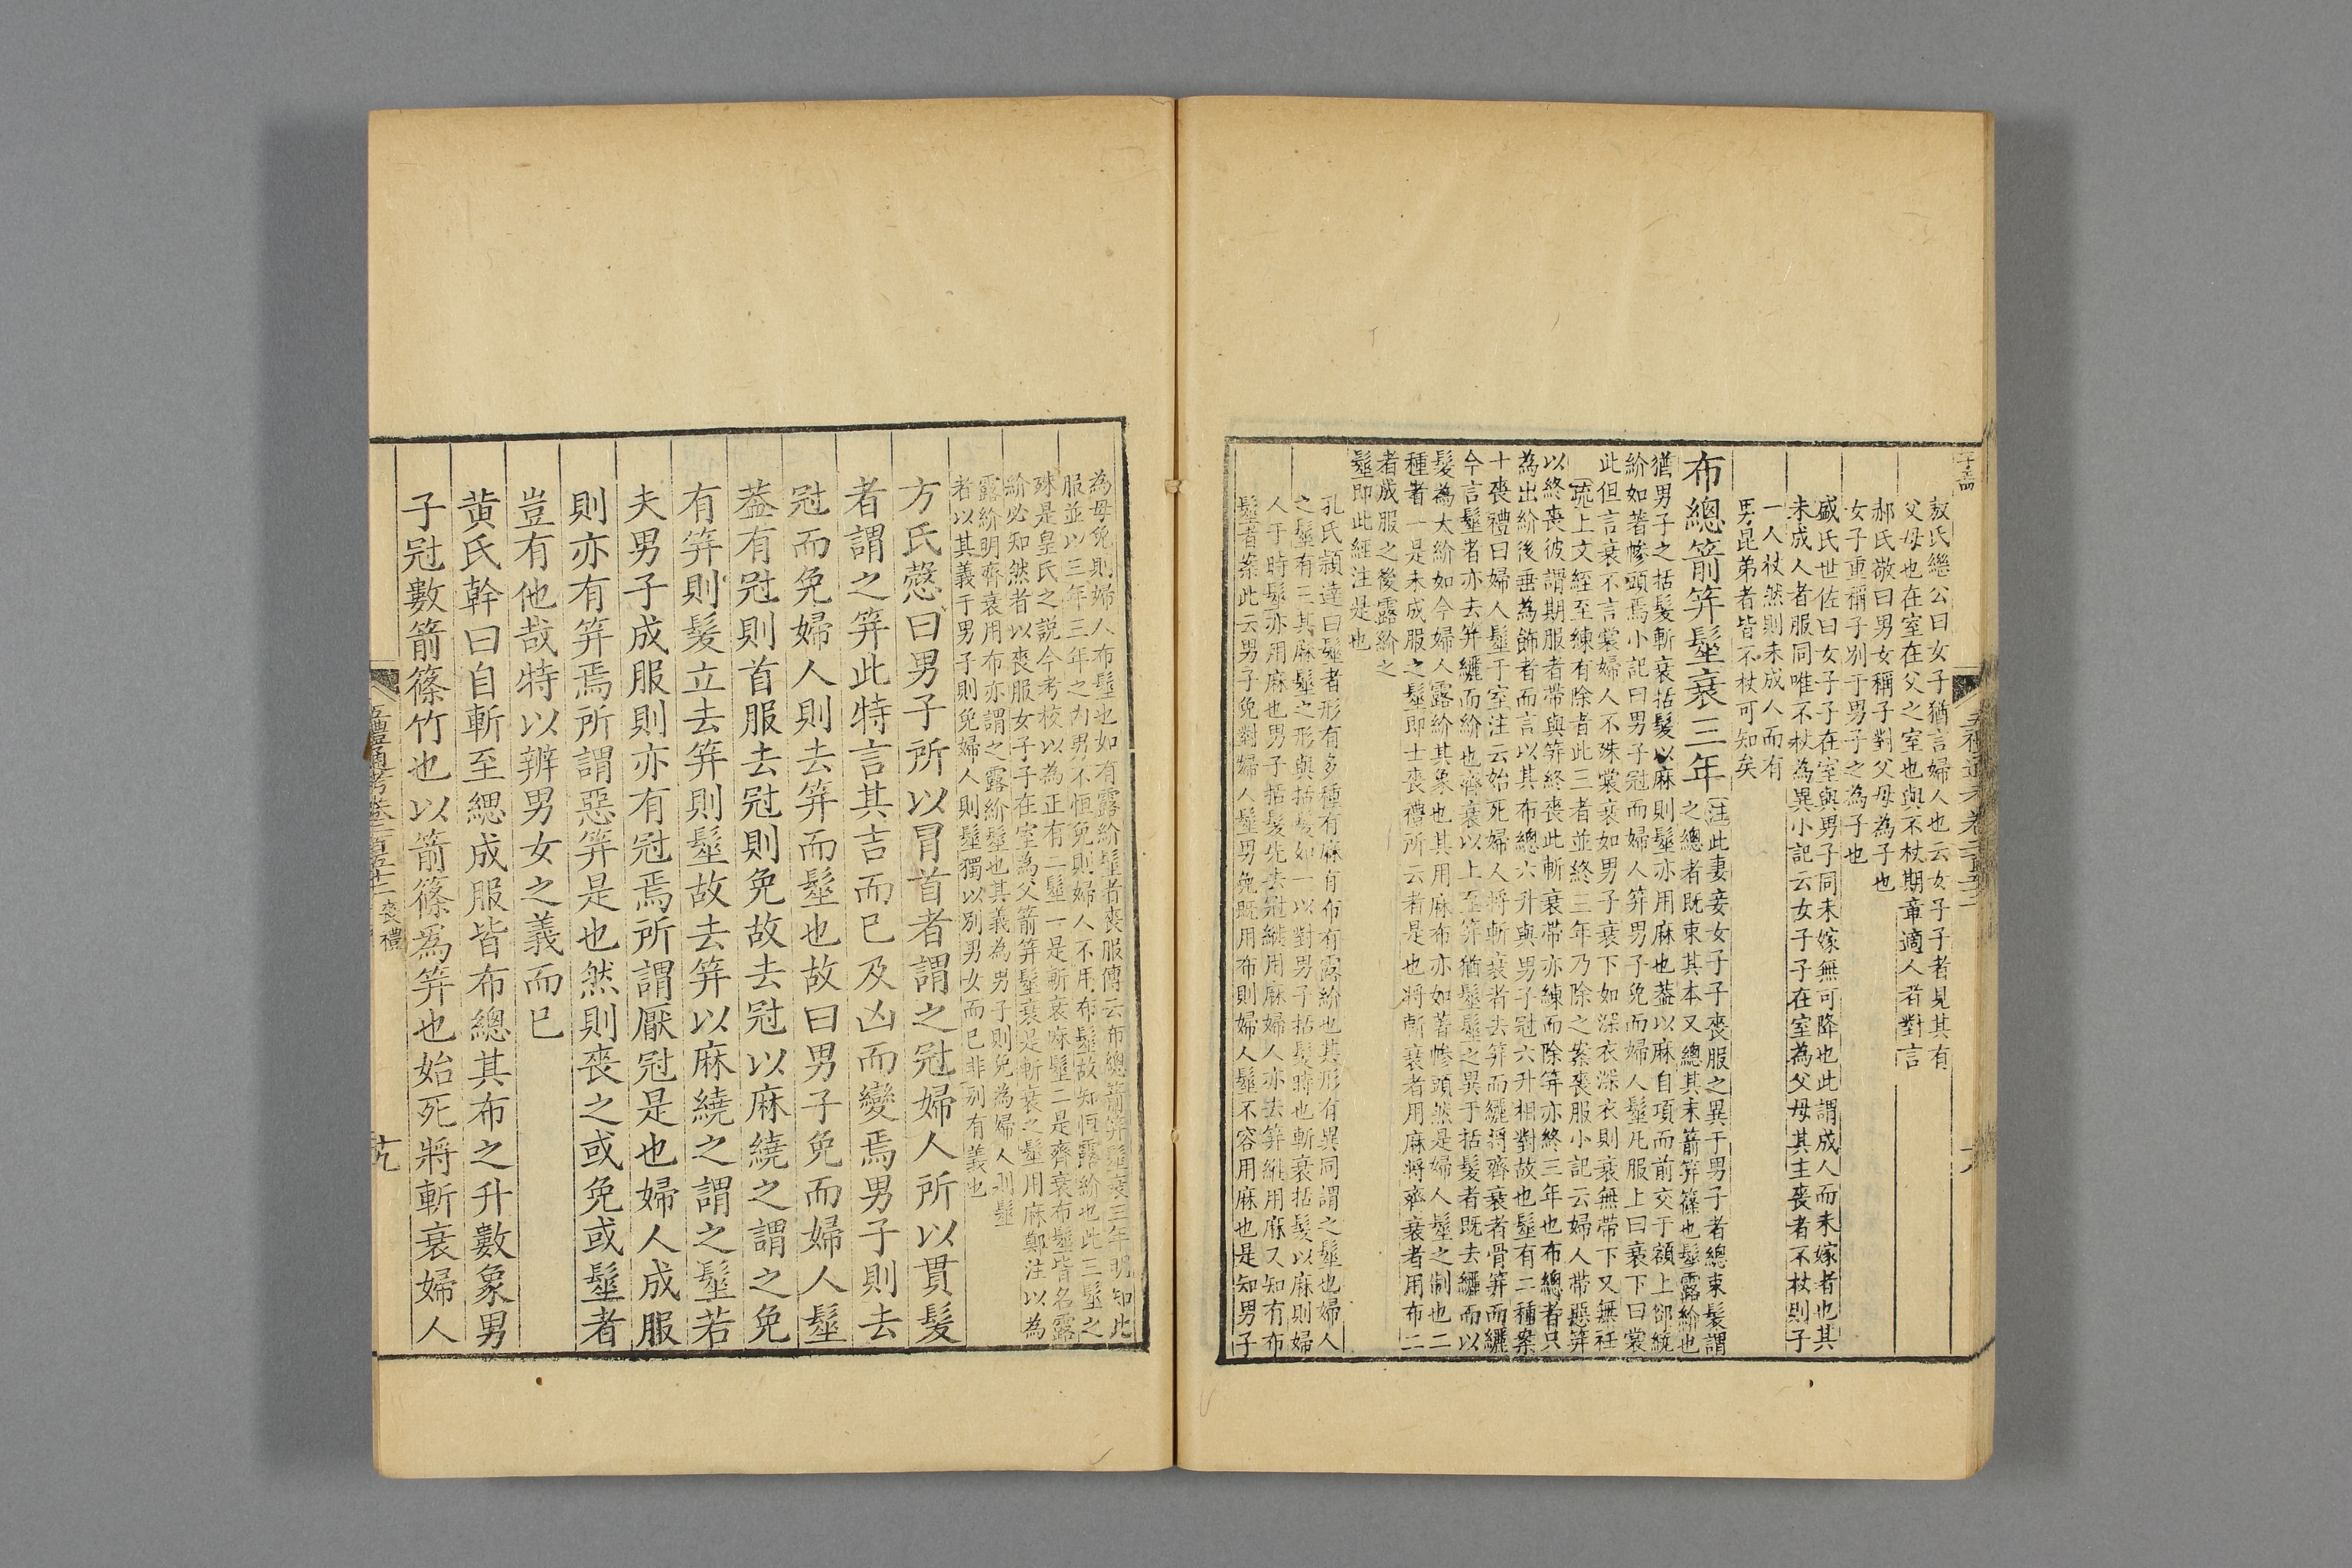 敖氏繼公曰女子猶言婦人也云女子子者見其有
父母也在室在父之室也與不杖期章適人者對言
郝氏敬曰男女稱子對父母為子也
女子重稱子別于男子之為子也
盛氏世佐曰女子子在室與男子同未嫁無可降也此謂成人而未嫁者也其
未成人者服同唯不杖為異小記云女子子在室為父母其主喪者不杖則子
一人杖然則未成人而有
男昆弟者皆不杖可知矣
布總箭笄髽衰三年
注此妻妾女子子喪服之異于男子者總束髮謂
之總者既束其本又總其末箭笄篠也髽露紒也
猶男子之括髮斬衰括髮以麻則髽亦用麻也蓋以麻自項而前交于額上郤繞
紒如著幓頭焉小記曰男子冠而婦人笄男子免而婦人髽凡服上曰衰下曰裳
此但言衰不言裳婦人不殊裳衰如男子衰下如深衣深衣則衰無帶下又無衽
疏上文絰至練有除者此三者並終三年乃除之案喪服小記云婦人帶惡笄
以終喪彼謂期服者帶與笄終喪此斬衰帶亦練而除笄亦終三年也布總者只
為出紒後垂為飾者而言以其布總六升與男子冠六升相對故也髽有二種案
士喪禮曰婦人髽于室注云始死婦人將斬衰者去笄而纚將齊衰者骨笄而纚
今言髽者亦去笄纚而紒也齊衰以上至笄猶髽髽之異于括髮者既去纚而以
髮為大紒如今婦人露紒其象也其用麻布亦如著幓頭然是婦人髽之制也二
種者一是未成服之髽即士喪禮所云者是也將斬衰者用麻將齊衰者用布二
者成服之後露紒之
髽即此經注是也
孔氏穎達曰髽者形有多種有麻有布有露紒也其形有異同謂之髽也婦人
之髽有三其麻髽之形與括髮如一以對男子括髮時也斬衰括髮以麻則婦
人于時髽亦用麻也男子括髮先去冠縰用麻婦人亦去笄縰用麻又知有布
髽者案此云男子免對婦人髽男免既用布則婦人髽不容用麻也是知男子
五禮通考卷二百五十二
為母免則婦人布髽也如有露紒髽者喪服傳云布總箭笄髽衰三年明知此
服並以三年三年之內男不恒免則婦人不用布髽故知恒露紒也此三髽之
殊是皇氏之說今考校以為正有二髽一是斬衰麻髽二是齊衰布髽皆名露
紒必知然者以喪服女子子在室為父箭笄髽衰是斬衰之髽用麻鄭注以為
露紒明齊衰用布亦謂之露紒髽也其義為男子則免為婦人則髽
者以其義于男子則免婦人則髽獨以別男女而已非別有義也
方氏慤曰男子所以冒首者謂之冠婦人所以貫髮
者謂之笄此特言其吉而已及凶而變焉男子則去
冠而免婦人則去笄而髽也故曰男子免而婦人髽
蓋有冠則首服去冠則免故去冠以麻繞之謂之免
有笄則髮立去笄則髽故去笄以麻繞之謂之髽若
夫男子成服則亦有冠焉所謂厭冠是也婦人成服
則亦有笄焉所謂惡笄是也然則喪之或免或髽者
豈有他哉特以辨男女之義而已
黃氏幹曰自斬至緦成服皆布總其布之升數象男
子冠數箭篠竹也以箭篠為笄也始死將斬衰婦人
五禮通考卷二百五十二 喪禮